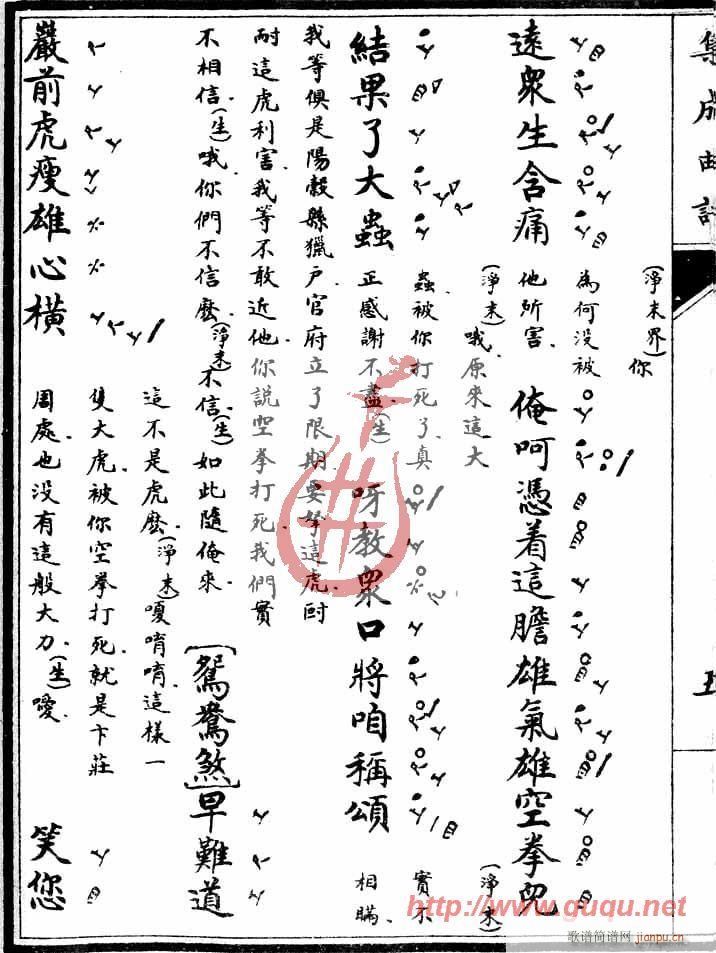 集成曲譜
遠眾生含痛
(淨末界)你
為何没被
他所害.
俺呵憑着這膽雄氣雄空拳兒
結果了大蟲
(淨末)哦.原來這大
蟲.被你打死了.真
正感謝不盡.(生)
呀教眾口將咱稱頌
(淨末)
實不
相瞞.
我等俱是陽穀縣獵户.官府立了限期.要拏這虎.尀
耐這虎利害.我等不敢近他.你說空拳打死.我們實
不相信.(生)哦.你們不信麽.(淨末)不信.(生)如此隨俺來.
[鴛鴦煞]早難道
巖前虎瘦雄心横
這不是虎麽.(淨末)嗄唷唷.這樣一
隻大虎.被你空拳打死.就是卞莊
周處.也没有這般大力.(生)噯.
笑您
http://www.guqu.net
歌谱简谱网
jianpu.cn